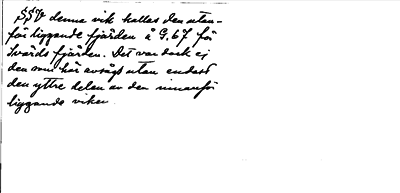 SSV denna vik kallas den utan-
för liggande fjärden å G. 67 för
Svärds fjärden. Det var dock ej
den som här avsågs utan endast
den yttre delen av den innanför
liggande viken.